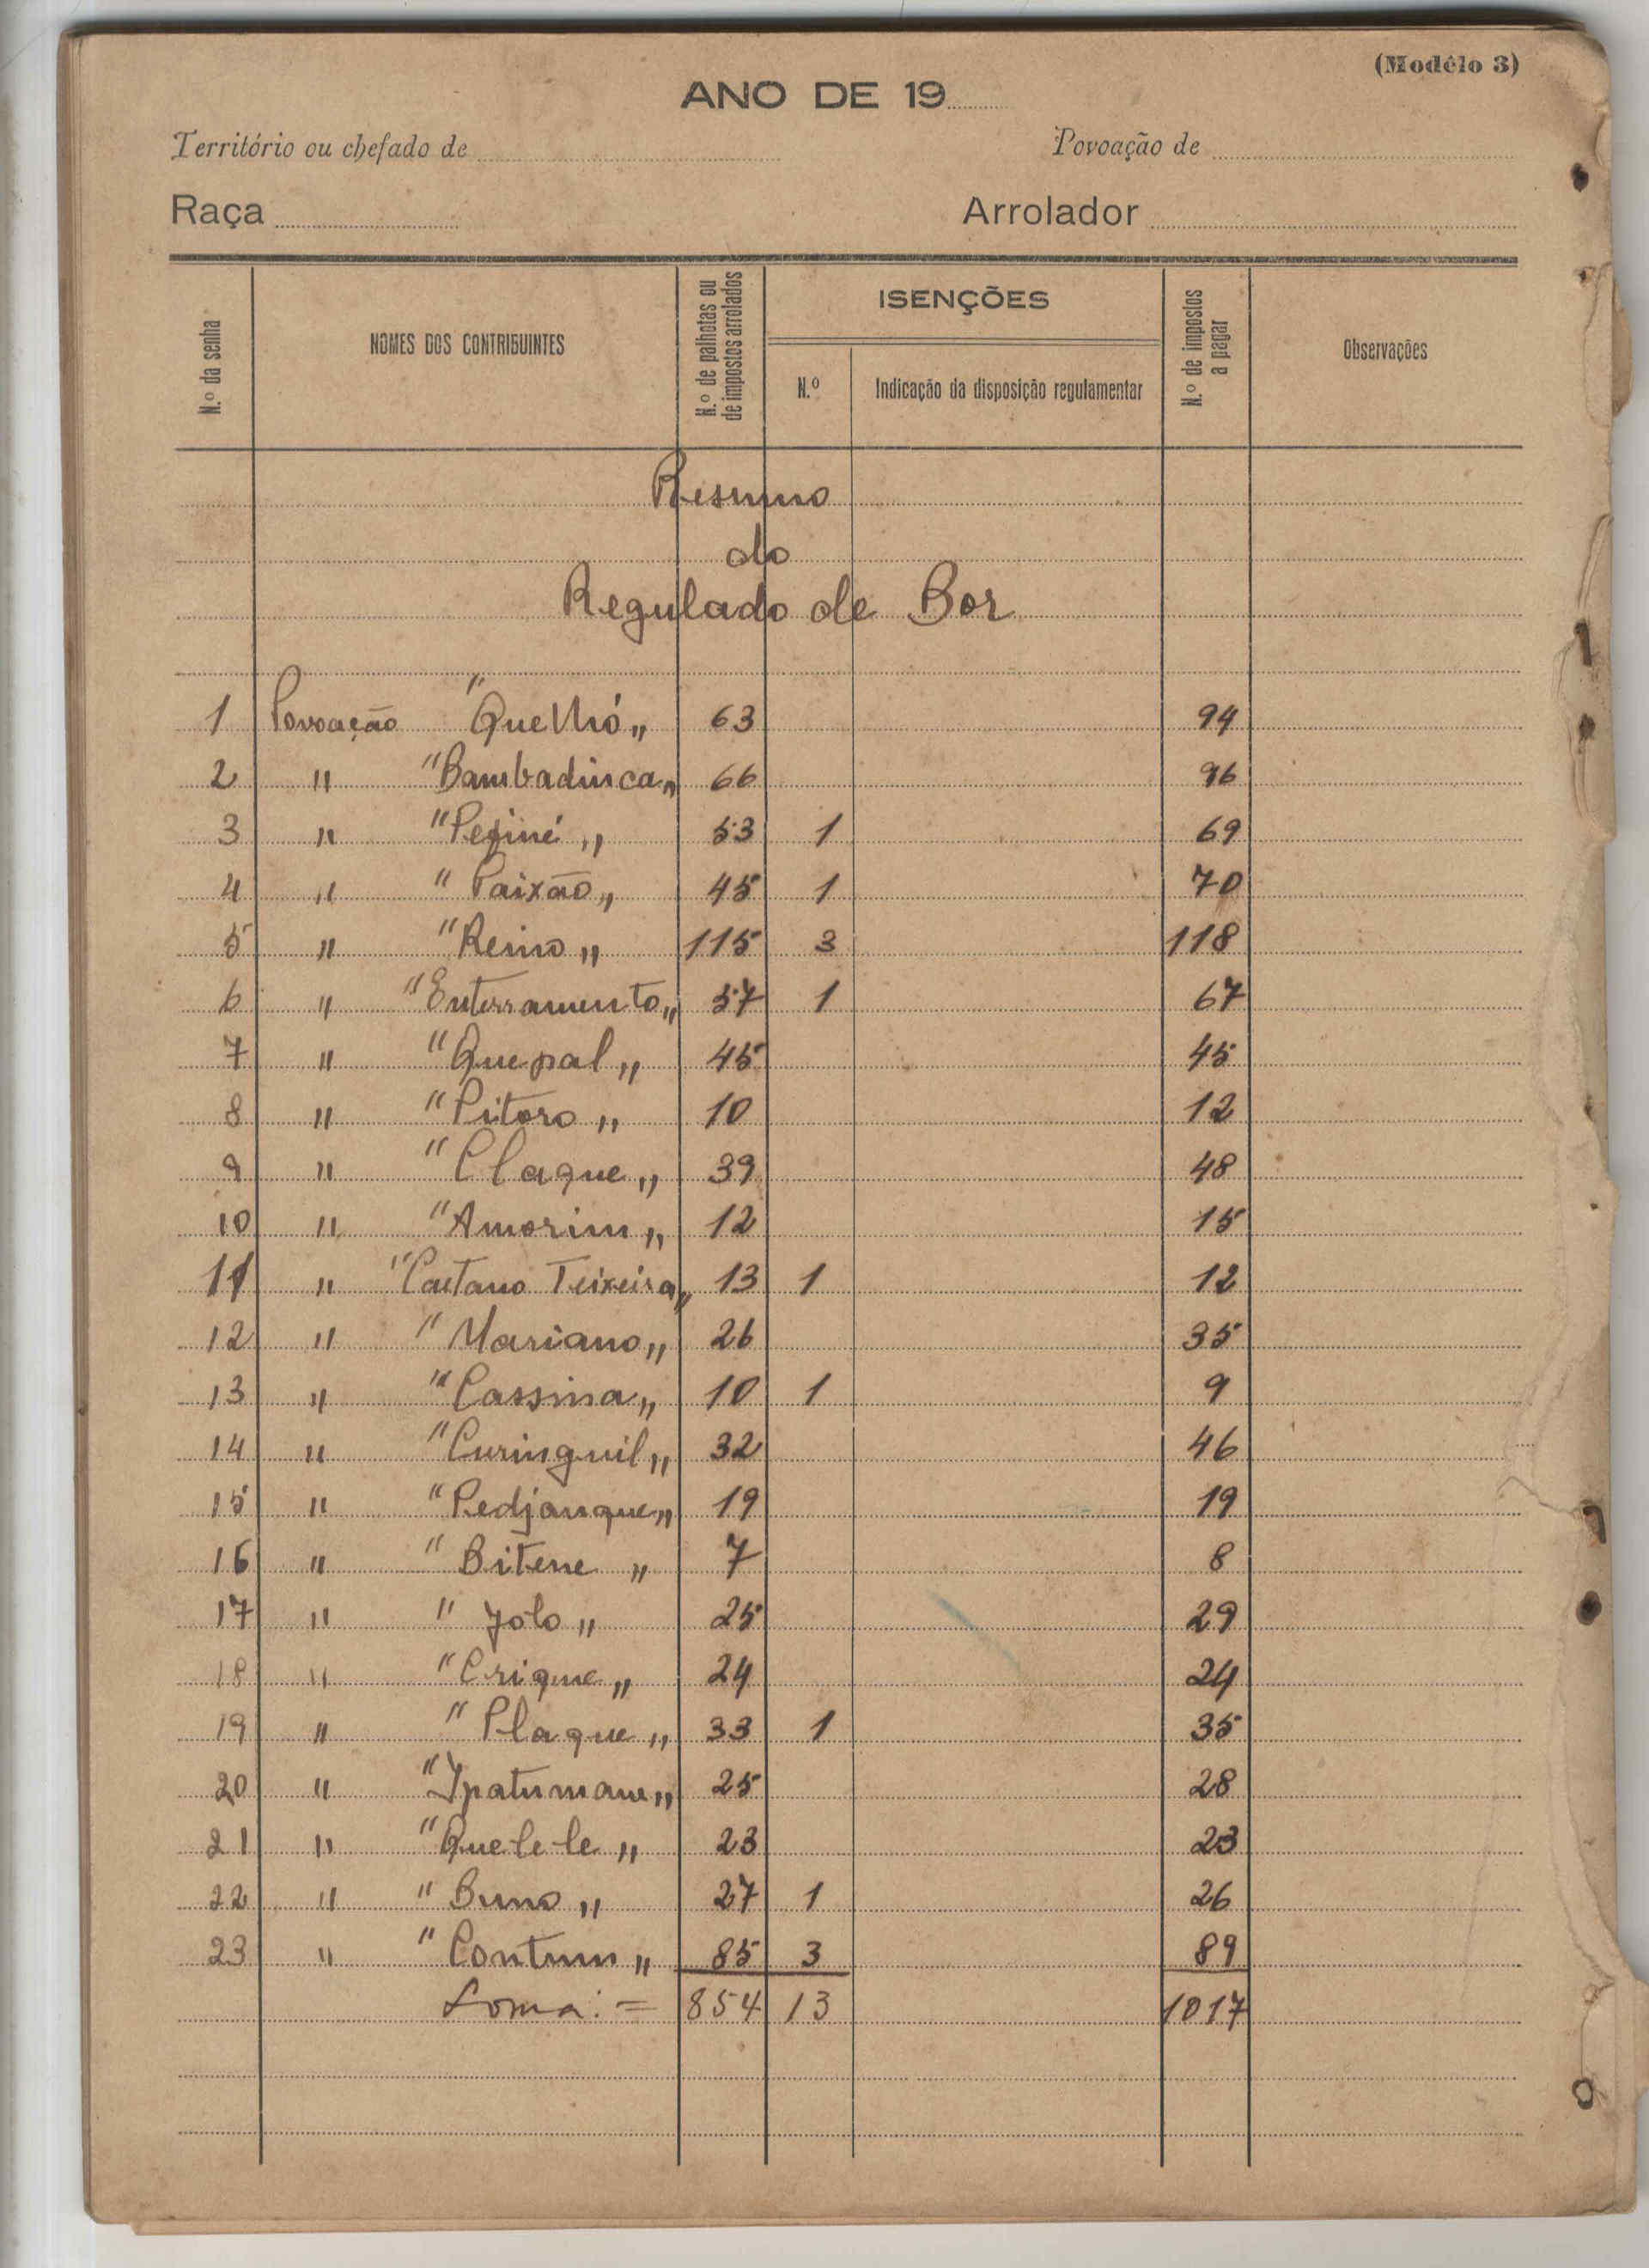 (Modêlo 3)
ANO DE 19
Território ou chefado de
Povoação de
Raça
Arrolador
N.º da senha
NOMES DOS CONTRIBUINTES
N.º de palhotas ou de impostos arrolados
ISENÇÕES
N.º
Indicação da disposição regulamentar
N.º de impostos a pagar
Observações
Resumo
do
Regulado de Bor
1 Povoação " " 63 94
2 " "Bambadinca" 66 96
3 " "Pefiné" 53 1 69
4 " "Paixão" 45 1 70
5 " "Reino" 115 3 118
6 " "Enterramento" 57 1 67
7 " "Quepal" 45 45
8 " "Pitoro" 10 12
9 " "Claque" 39 48
10 " "Amorim" 12 15
11 " "Caetano Teixeira" 13 1 12
12 " "Mariano" 26 35
13 " "Cassina" 10 1 9
14 " "Curinguil" 32 46
15 " "Pedjanque" 19 19
16 " "Bitene" 7 8
17 " "Jolo" 25 29
18 " "Crique" 24 24
19 " "Plaque" 33 1 35
20 " " " 25 28
21 " "Quelele" 23 23
22 " "Buno" 27 1 26
23 " "Contum" 85 3 89
Soma: = 854 13 1017